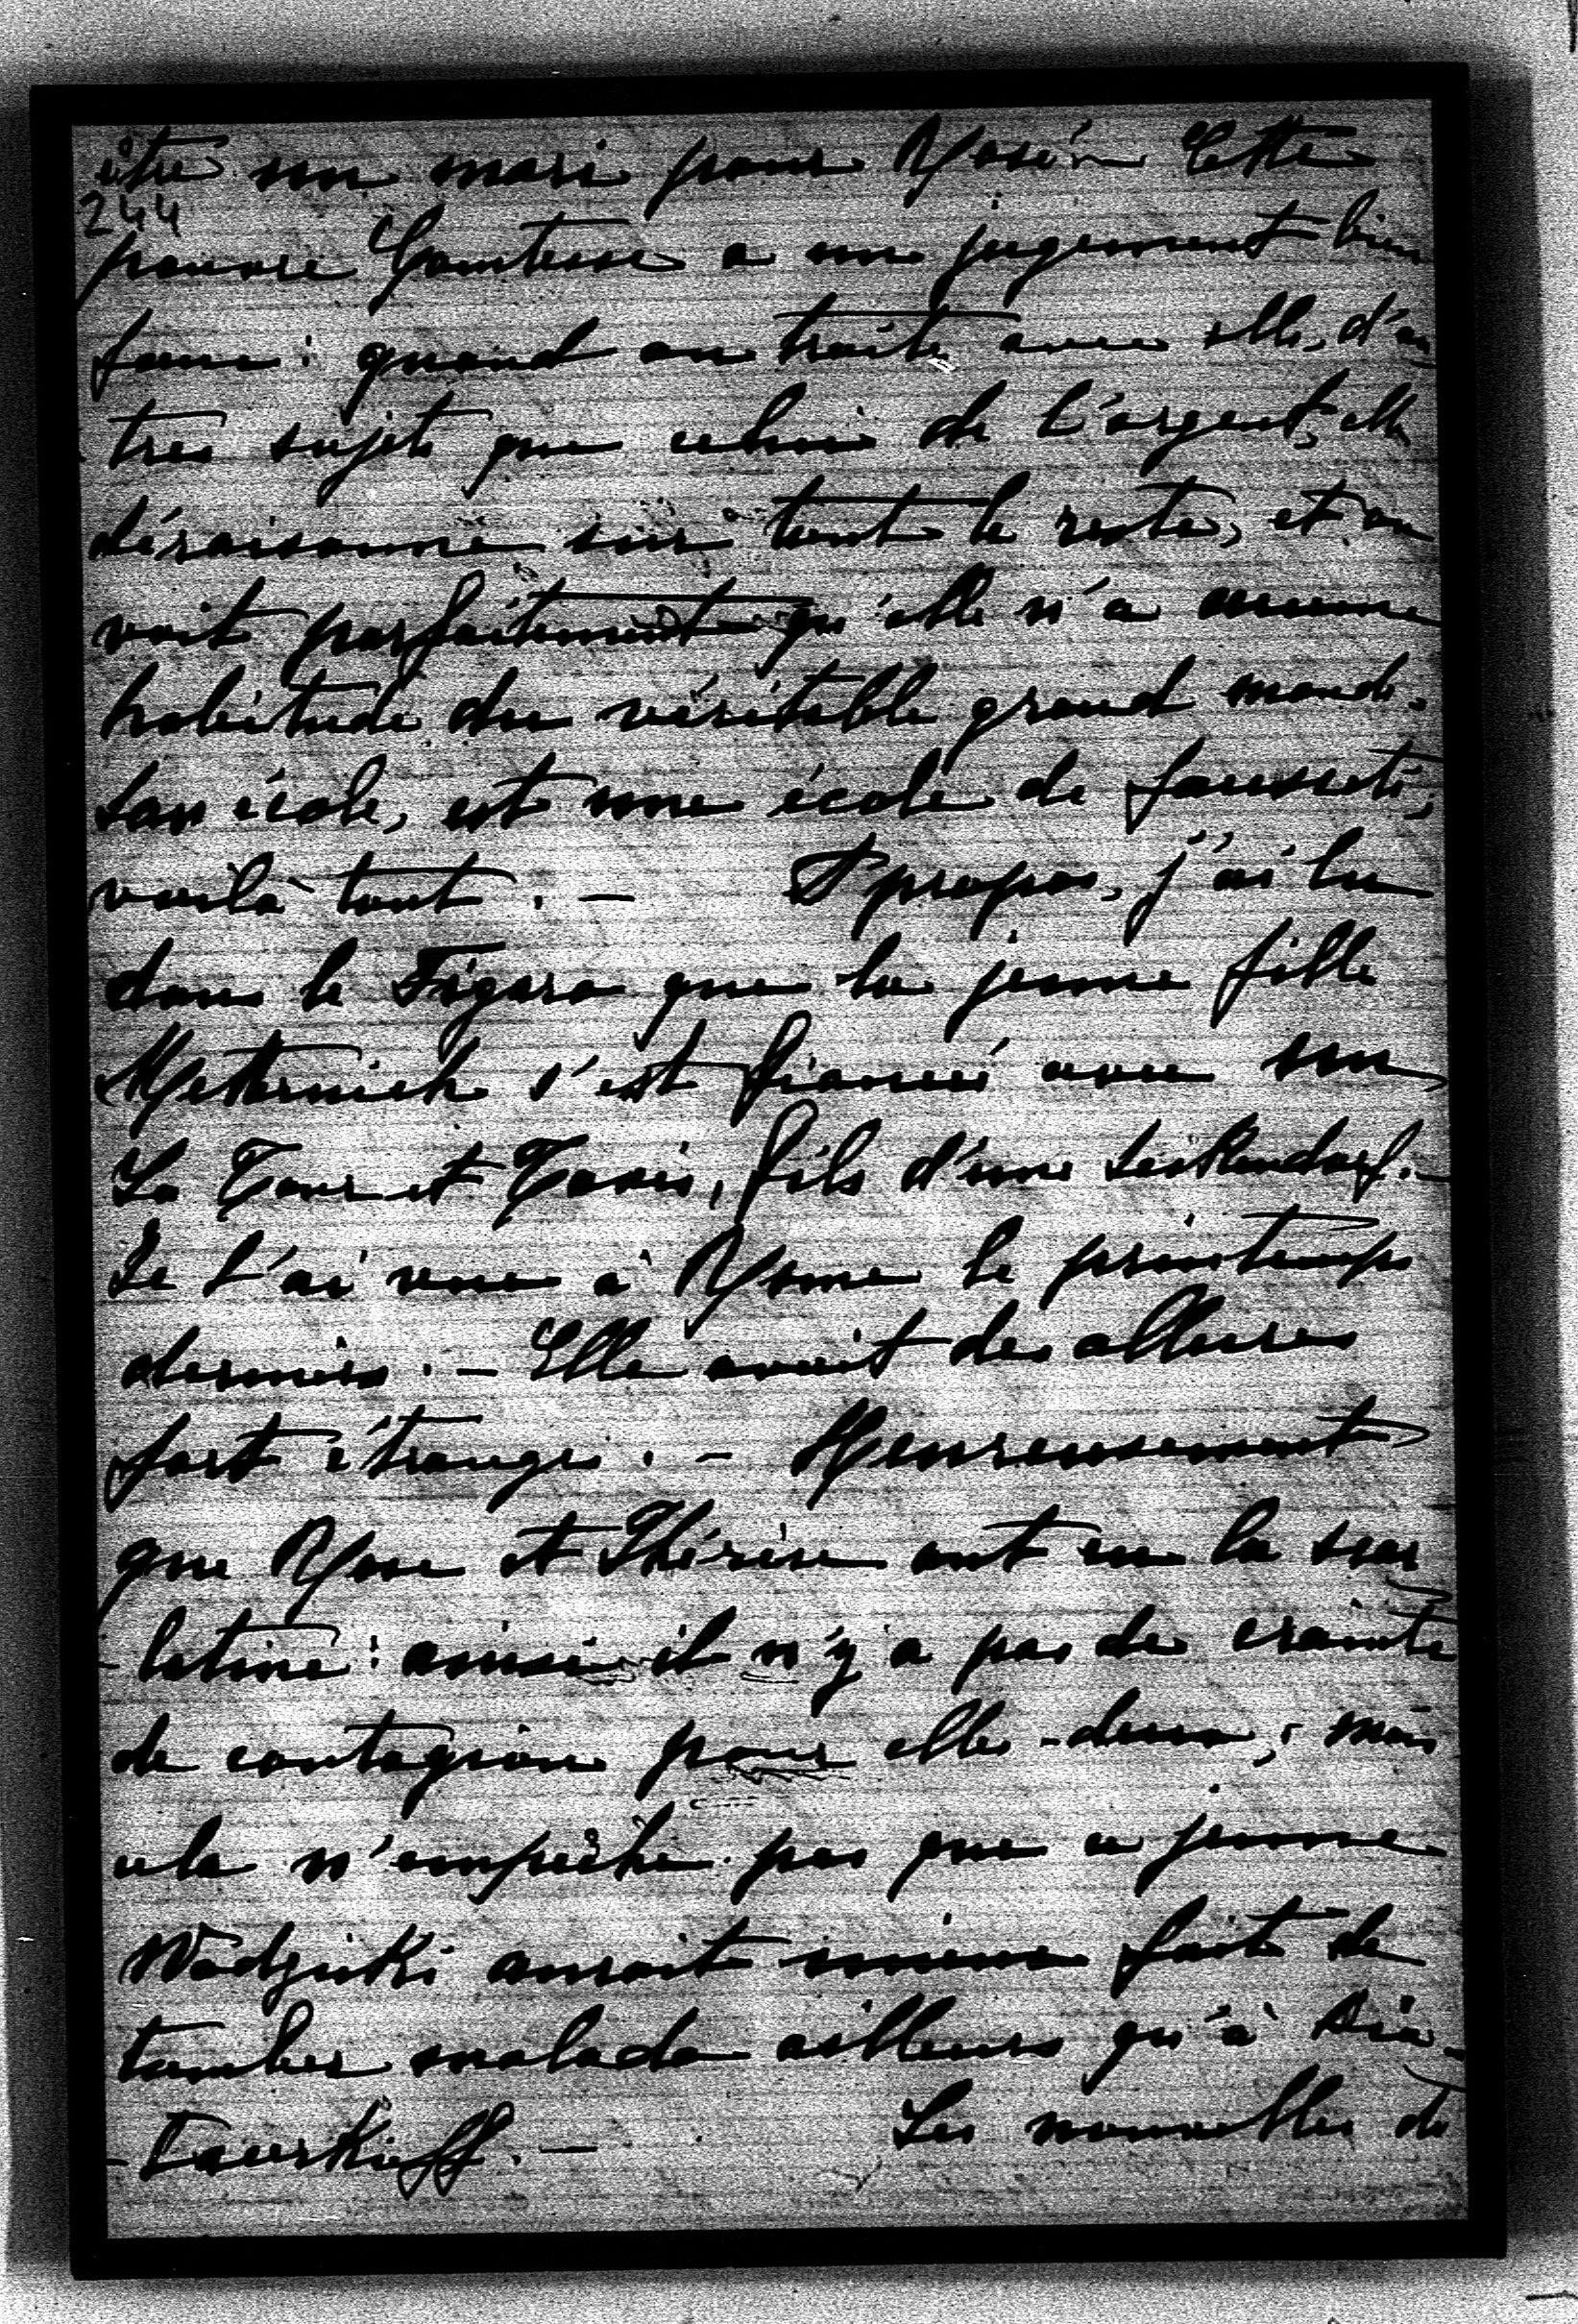 être un mari pour Rose! Cette
244
pauvre Comtesse a un jugement bien
faux: quand on traite avec elle, d'au
tres sujets que celui de l'argent, elle
déraisonne sur tout le reste, et on
voit parfaitement qu'elle n'a aucune
habitude du véritable grand monde.
Son école, est une école de fausseté,
voilà tout. — A propos, j'ai lu
dans le Figaro que la jeune fille
Metternich s'est fiancée avec un
La Tour et Taxis, fils d'une
Je l'ai vue à Rome le printemps
dernier. — Elle avait des allures
fort étranges. — Heureusement
que Rose et Thérèse ont eu la scar
-latine: ainsi il n'y a pas de crainte
de contagion pour elles-deux; mais
cela n'empêche pas que ce jeune
Wodzicki aurait mieux fait de
tomber malade ailleurs qu'à Bia-
-tzerkieff. — Les nouvelles de